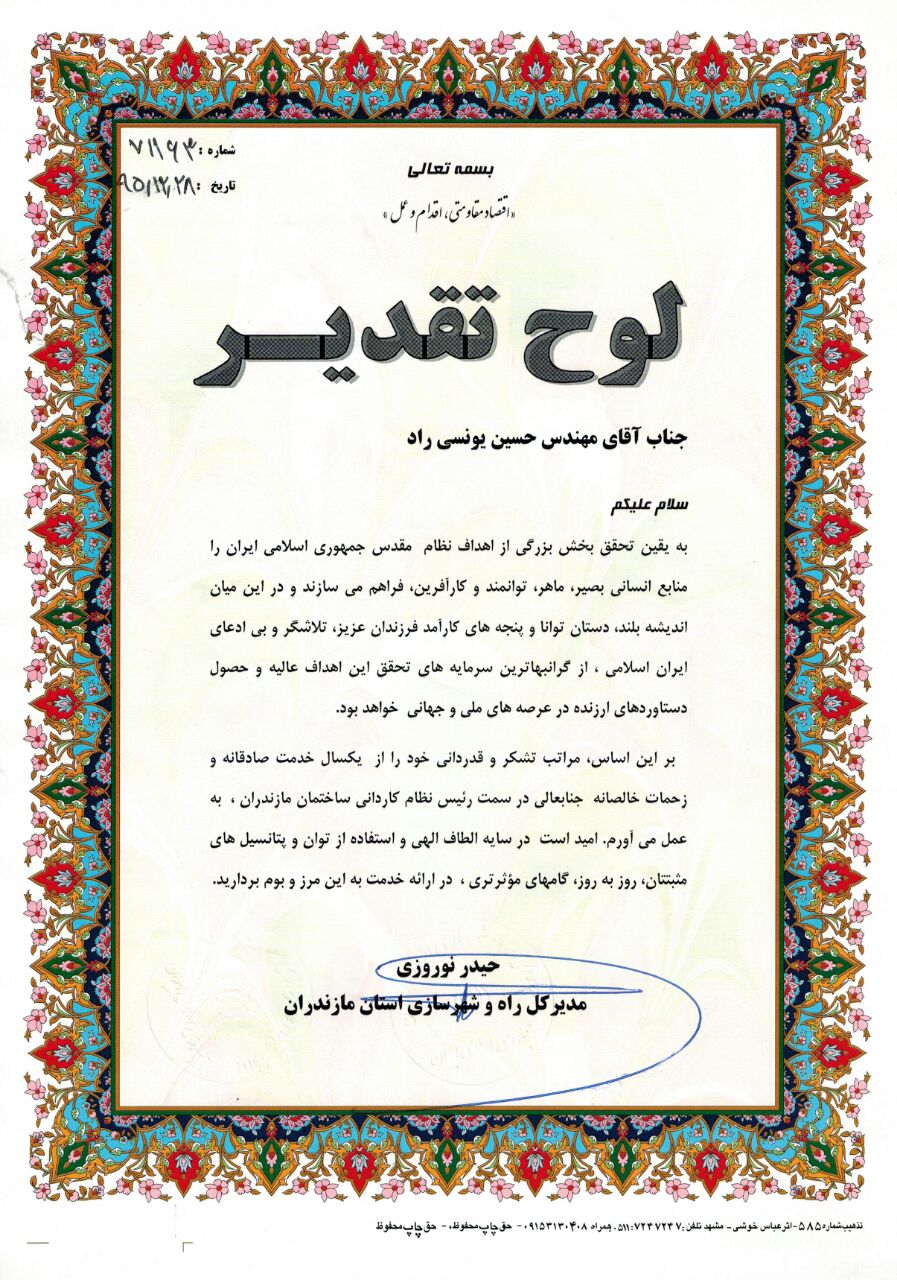 شماره : ۷۱۱۶۳
تاریخ : ۹۵,۱۲,۲۸
بسمه تعالی
«اقتصاد مقاومتی، اقدام و عمل»
لوح تقدیر
جناب آقای مهندس حسین یونسی راد
سلام علیکم
به یقین تحقق بخش بزرگی از اهداف نظام مقدس جمهوری اسلامی ایران را
منابع انسانی بصیر، ماهر، توانمند و کارآفرین، فراهم می سازند و در این میان
اندیشه بلند، دستان توانا و پنجه های کارآمد فرزندان عزیز، تلاشگر و بی ادعای
ایران اسلامی ، از گرانبهاترین سرمایه های تحقق این اهداف عالیه و حصول
دستاوردهای ارزنده در عرصه های ملی و جهانی خواهد بود.
بر این اساس، مراتب تشکر و قدردانی خود را از یکسال خدمت صادقانه و
زحمات خالصانه جنابعالی در سمت رئیس نظام کاردانی ساختمان مازندران ، به
عمل می آورم. امید است در سایه الطاف الهی و استفاده از توان و پتانسیل های
مثبتتان، روز به روز، گامهای مؤثرتری ، در ارائه خدمت به این مرز و بوم بردارید.
حیدر نوروزی
مدیرکل راه و شهرسازی استان مازندران
تذهیب شماره ۵۸۵-اثر عباس خوشی - مشهد تلفن: ۷۲۴۷۲۴۷-۰۵۱۱ همراه ۰۹۱۵۳۱۳۰۴۰۸- حق چاپ محفوظ، - حق چاپ محفوظ